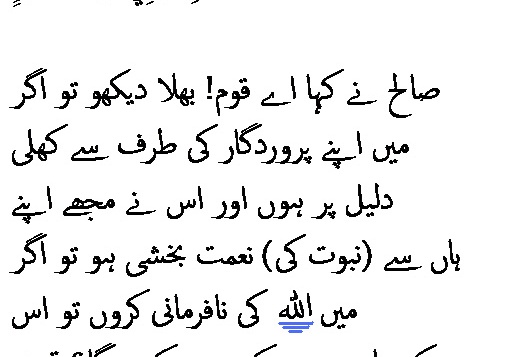 صالح نے کہا اے قوم! بھلا دیکھو تو اگر
میں اپنے پروردگار کی طرف سے کھلی
دلیل پر ہوں اور اس نے مجھے اپنے
ہاں سے (نبوت کی) نعمت بخشی ہو تو اگر
میں الله کی نافرمانی کروں تو اس